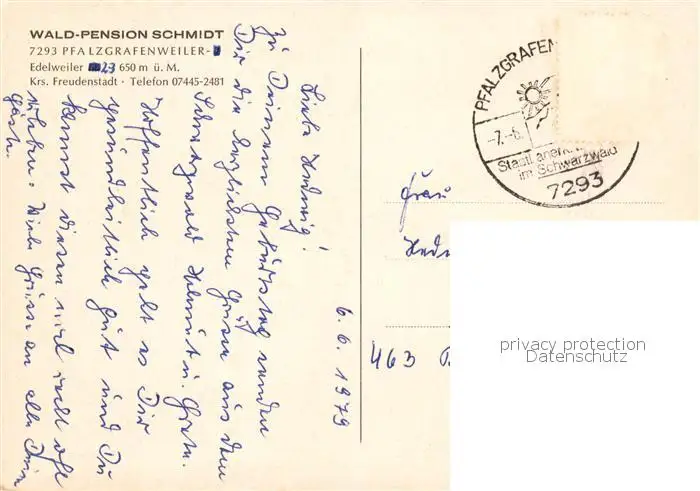 WALD-PENSION SCHMIDT
7293 PFALZGRAFENWEILER-
Edelweiler 23 650 m ü. M.
Krs. Freudenstadt · Telefon 07445-2481
6. 6. 1979
Liebe Hedwig!
Zu Deinem Geburtstag senden
Dir die herzlichsten Grüße aus dem
Schwarzwald Helmut u. Grete.
Hoffentlich geht es Dir
gesundheitlich gut und Du
kannst diesen mal recht oft
erleben. Viele Grüsse an alle Deine
Gäste.
PFALZGRAFEN
-7.-6.
Staatl. anerk
im Schwarzwald
7293
Frau
Hedw
463
privacy protection
Datenschutz